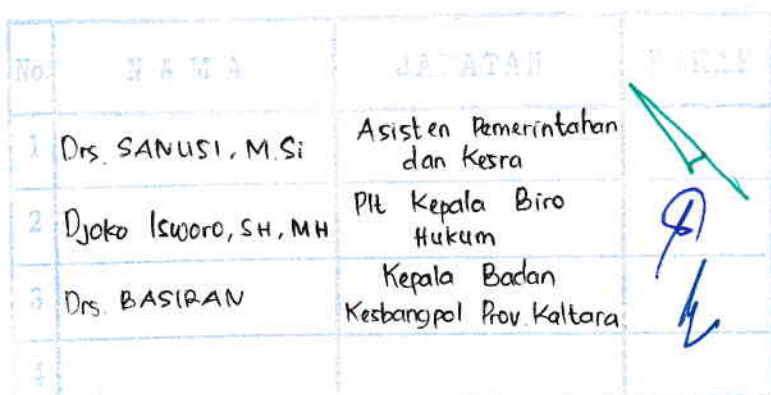 No. NAMA JABATAN PARAF
1 Drs. SANUSI, M.Si Asisten Pemerintahan
dan Kesra
2 Djoko Isworo, SH, MH Plt Kepala Biro
Hukum
3 Drs. BASIRAN Kepala Badan
Kesbangpol Prov. Kaltara
4